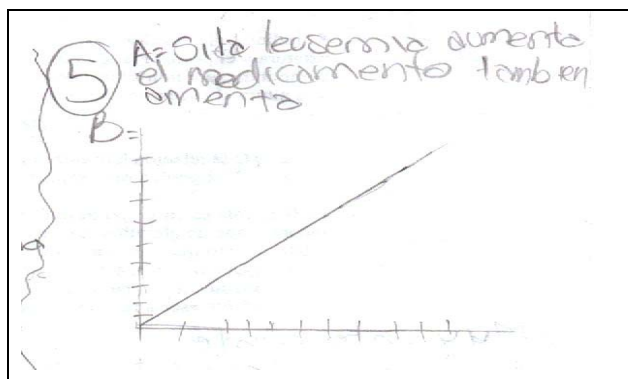 5
A= Si la leusemia aumenta
el medicamento tambien
amenta
B=